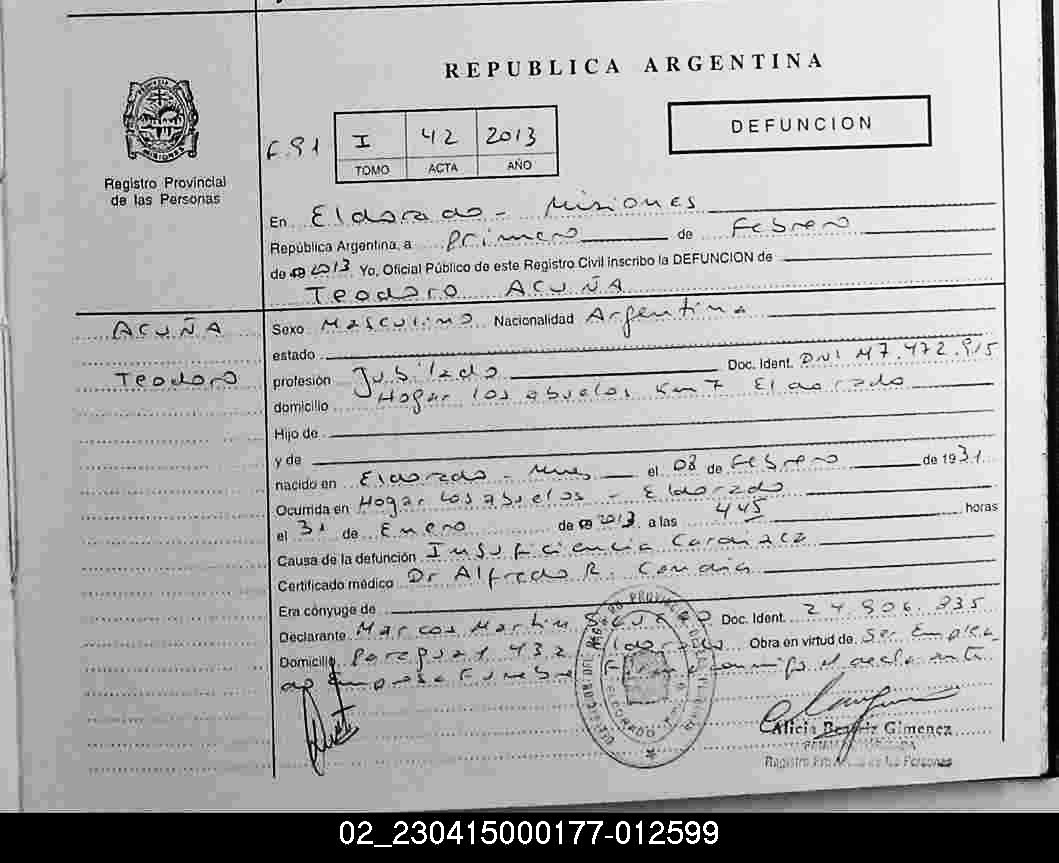 REPUBLICA ARGENTINA
DEFUNCION
F.91 I 42 2013
TOMO ACTA AÑO
PROVINCIA DE MISIONES
Registro Provincial
de las Personas
En Eldorado - Misiones
República Argentina, a primero de Febrero
de 2013 Yo, Oficial Público de este Registro Civil inscribo la DEFUNCION de
Teodoro ACUÑA
ACUÑA
Teodoro
Sexo Masculino Nacionalidad Argentina
estado
profesión Jubilado Doc. Ident. DNI M7.472.915
domicilio Hogar los abuelos Km 7 Eldorado
Hijo de
y de
nacido en Eldorado - Mnes el 08 de Febrero de 1931
Ocurrida en Hogar Los abuelos - Eldorado
el 31 de Enero de 2013 a las 445 horas
Causa de la defunción Insuficiencia Cardiaca
Certificado médico Dr Alfredo R.
Era cónyuge de
Declarante Marcos Martin Doc. Ident. 24.906.935
Domicilio Paraguay 432 Eldorado Obra en virtud de Ser Emplea
do Empresa Funebre Firma conmigo el declarante
Alicia Beatriz Gimenez
Registro Provincial de las Personas
02_230415000177-012599